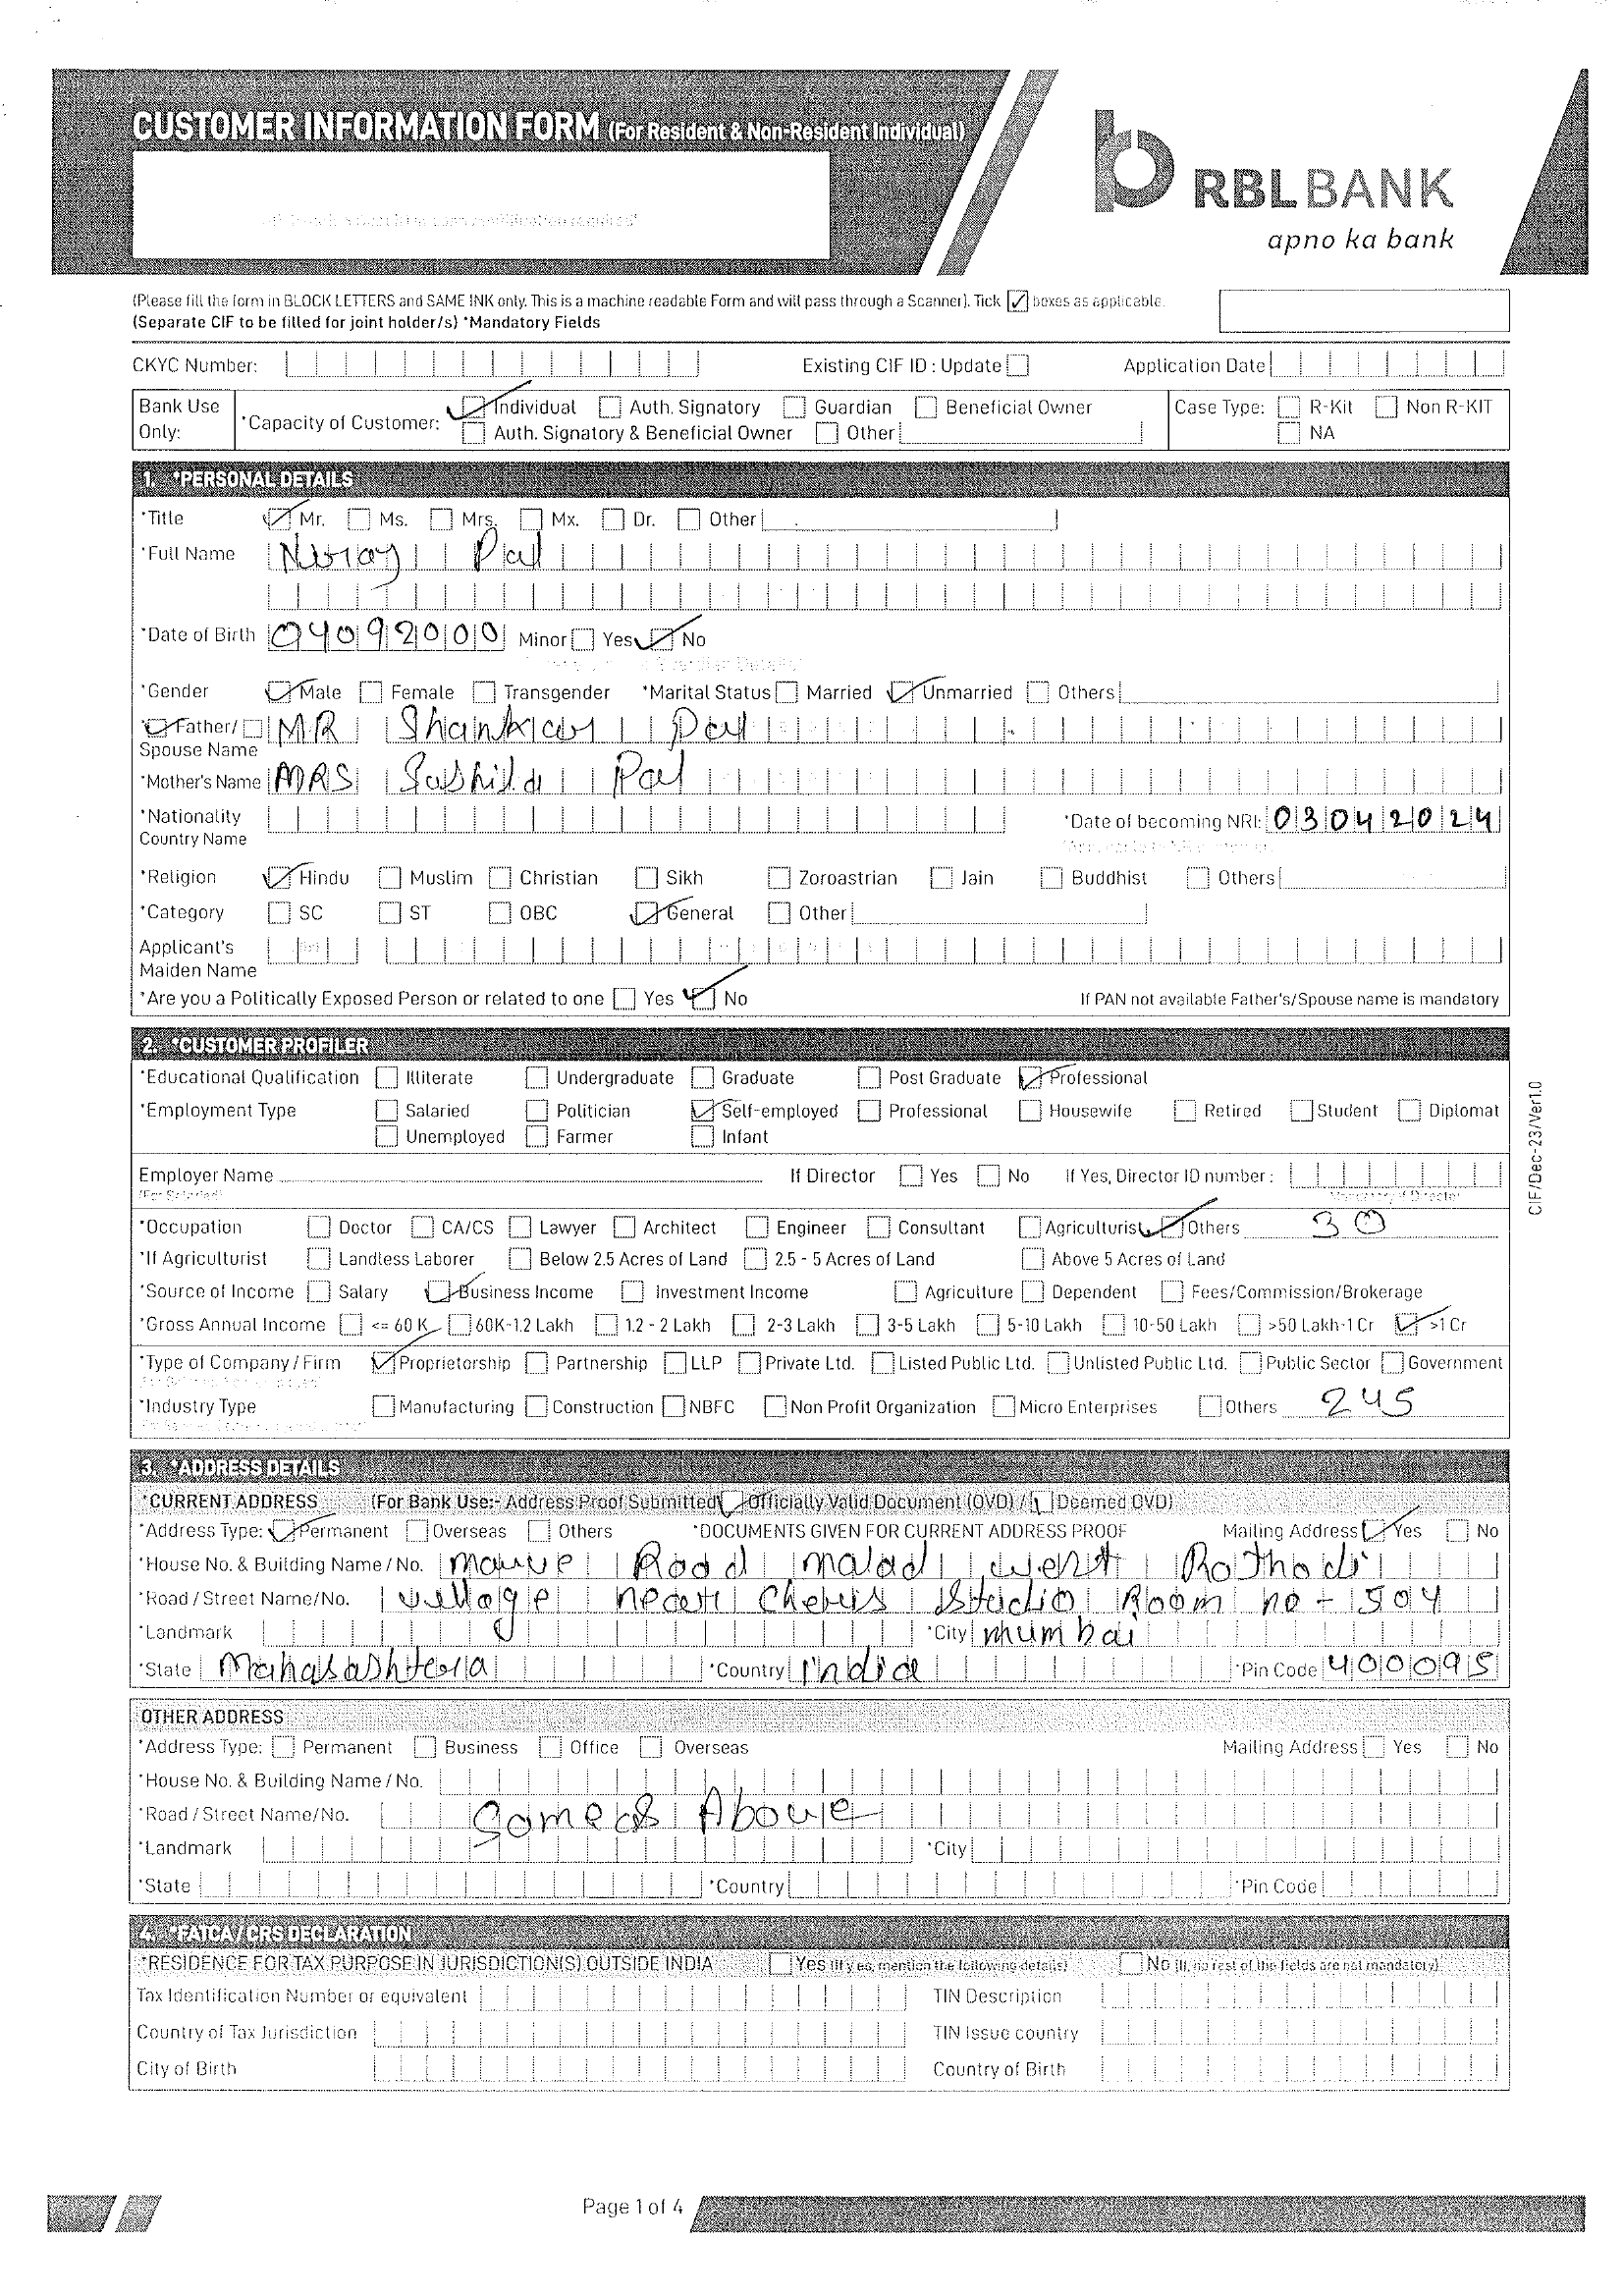 CUSTOMER INFORMATION FORM (For Resident & Non-Resident Individual)
RBLBANK
apno ka bank
(Please fill the form in BLOCK LETTERS and SAME INK only. This is a machine readable Form and will pass through a Scanner). Tick ✓ boxes as applicable.
(Separate CIF to be filled for joint holder/s) *Mandatory Fields
CKYC Number: Existing CIF ID : Update Application Date
Bank Use Only: *Capacity of Customer: ✓ Individual Auth. Signatory Guardian Beneficial Owner Case Type: R-Kit Non R-KIT
Auth. Signatory & Beneficial Owner Other NA
1. *PERSONAL DETAILS
*Title ✓ Mr. Ms. Mrs. Mx. Dr. Other
*Full Name Pal
*Date of Birth 04092000 Minor Yes ✓ No
*Gender ✓ Male Female Transgender *Marital Status Married ✓ Unmarried Others
*✓ Father/ Spouse Name MR Shankar Pal
*Mother's Name MRS Sushila Pal
*Nationality Country Name *Date of becoming NRI: 03042024
*Religion ✓ Hindu Muslim Christian Sikh Zoroastrian Jain Buddhist Others
*Category SC ST OBC ✓ General Other
Applicant's Maiden Name
*Are you a Politically Exposed Person or related to one Yes ✓ No If PAN not available Father's/Spouse name is mandatory
2. *CUSTOMER PROFILER
*Educational Qualification Illiterate Undergraduate Graduate Post Graduate ✓ Professional
*Employment Type Salaried Politician ✓ Self-employed Professional Housewife Retired Student Diplomat
Unemployed Farmer Infant
Employer Name If Director Yes No If Yes, Director ID number :
(For Salaried) Mandatory if Director
*Occupation Doctor CA/CS Lawyer Architect Engineer Consultant Agriculturist ✓ Others 30
*If Agriculturist Landless Laborer Below 2.5 Acres of Land 2.5 - 5 Acres of Land Above 5 Acres of Land
*Source of Income Salary ✓ Business Income Investment Income Agriculture Dependent Fees/Commission/Brokerage
*Gross Annual Income <= 60 K 60K-1.2 Lakh 1.2 - 2 Lakh 2-3 Lakh 3-5 Lakh 5-10 Lakh 10-50 Lakh >50 Lakh-1 Cr ✓ >1 Cr
*Type of Company / Firm ✓ Proprietorship Partnership LLP Private Ltd. Listed Public Ltd. Unlisted Public Ltd. Public Sector Government
*Industry Type Manufacturing Construction NBFC Non Profit Organization Micro Enterprises Others 245
CIF/Dec-23/Ver1.0
3. *ADDRESS DETAILS
*CURRENT ADDRESS (For Bank Use:- Address Proof Submitted ✓ Officially Valid Document (OVD) / Deemed OVD)
*Address Type: ✓ Permanent Overseas Others *DOCUMENTS GIVEN FOR CURRENT ADDRESS PROOF Mailing Address ✓ Yes No
*House No. & Building Name / No. Marve Road malad west Rathodi
*Road / Street Name/No. village near Studio Room no - 504
*Landmark *City mumbai
*State Maharashtra *Country india *Pin Code 400095
OTHER ADDRESS
*Address Type: Permanent Business Office Overseas Mailing Address Yes No
*House No. & Building Name / No.
*Road / Street Name/No. Same as Above
*Landmark *City
*State *Country *Pin Code
4. *FATCA / CRS DECLARATION
*RESIDENCE FOR TAX PURPOSE IN JURISDICTION(S) OUTSIDE INDIA Yes (If yes, mention the following details) No (If, no rest of the fields are not mandatory)
Tax Identification Number or equivalent TIN Description
Country of Tax Jurisdiction TIN Issue country
City of Birth Country of Birth
Page 1 of 4